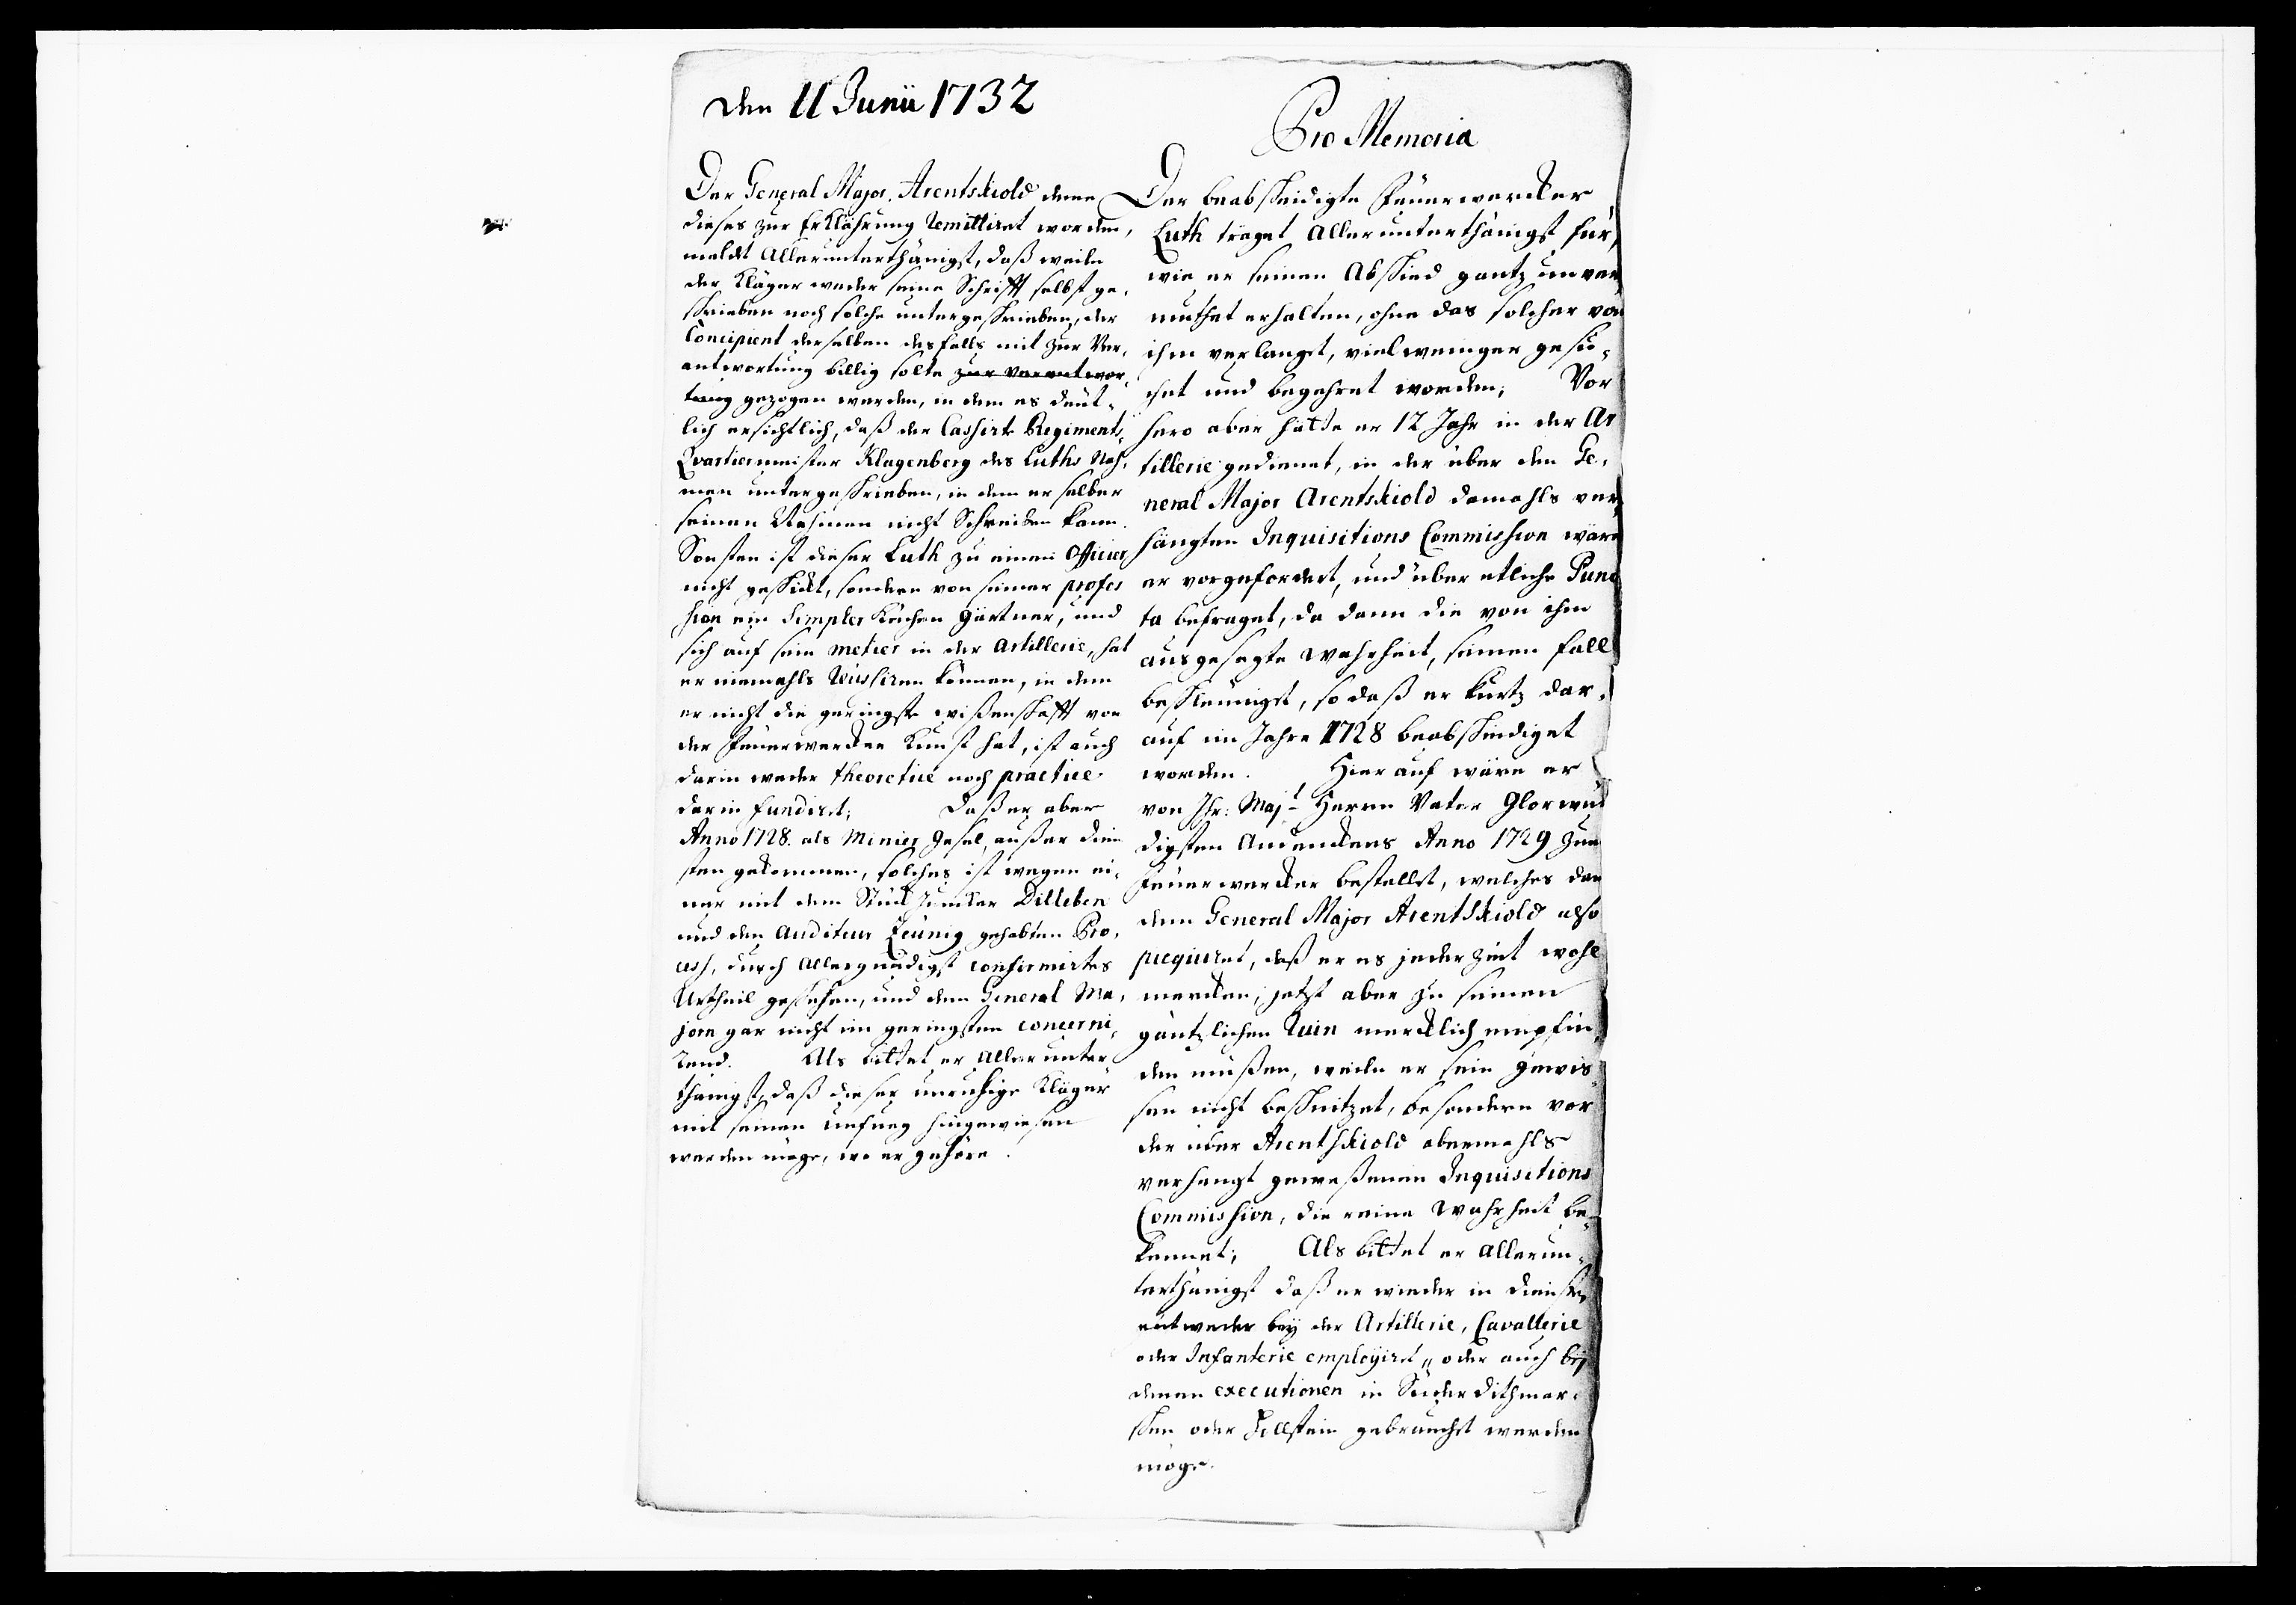 den 11 Junii 1732
Pro Memoria
Der General Major Arentskiold deme
dieses zur Erklährung remittiret worden,
meldt Allerunterthänigst, daß weile
der Kläger weder seine Schrifft selbst ge,
schrieben noch solche untergeschrieben, der
Concipient derselben desfalls mit zur Ver,
antwortung billig solte zur verantwor,
tung gezogen werden, in dem es deut,
lich ersichtlich, daß der Cassirte Regiments,
Qvartiermeister Klagenberg des Luths Nah,
men untergeschrieben, in dem er selber
seinen Nahmen nicht Schreiben kann.
Sonsten ist dieser Luth zu einen Officier
nicht geschickt, sondern von seiner profes
sion ein simpler Küchen gärtner, und
sich auf sein metier in der Artillerie, hat
er niemahls reussiren können, in dem
er nicht die geringste wißenschafft von
der Feuerwercker Kunst hat, ist auch
darin weder theoretice noch practice
darin fundiret; Daß er aber
Anno 1728. als Minier Gesel, außer dien
sten gekommen, solches ist wegen ei,
ner mit dem Stück Juncker Dilleben
und den Auditeur Zeunig gehabten Pro,
cess, durch Allergnädigst confirmirtes
Urtheil geschehen, und den General Ma,
jorn gar nicht im geringsten concerni,
rend. Als bittet er Allerunter
thänigst, daß dieser unruhige Kläger
mit seinen unfueg hingewiesen
werden möge, wo er gehöre.
Der beabscheidigte Feuerwercker
Luth träget Allerunterthänigst für,
wie er seinen Abschied gantz unver
muthet erhalten, ohne das solcher von
ihm verlanget, vielweniger gesu,
chet und begehret worden; Vor
hero aber hätte er 12 Jahr in der Ar
tillerie gedienet, in der über den Ge,
neral Major Arentskiold damahls ver,
hängten Inquisitions Commission wäre
er vorgefordert, und über etliche Punc
ta befraget, da dann die von ihm
ausgesagte Wahrheit, seinen fall
beschleunigt, so daß er kurtz dar,
auf im Jahre 1728 beabscheidiget
worden. Hierauf wäre er
von Ihr: Majt Herrn Vater Glorwür
digsten Andenckens Anno 1729 zum
Feuerwercker bestellet, welches den
dem General Major Arentskiold also
piquiret, daß er es jederzeit wohl
mercken; jetzt aber zu seinen
gäntzlichen Ruin mercklich empfin,
den müßen, weile er sein Gewis
sen nicht beschmitzet, besondern vor
der über Arentskiold abermahls
verhengt geweßenen Inquisitions
Commission, die reine Wahrheit be,
kennet; Als bittet er allerun,
terthänigst daß er wieder in diensten
entweder bey der Artillerie, Cavallerie
oder Infanterie employiret, oder auch bey
denen executionen in Süder Dithmar,
schen oder Hollstein gebrauchet werden
möge.